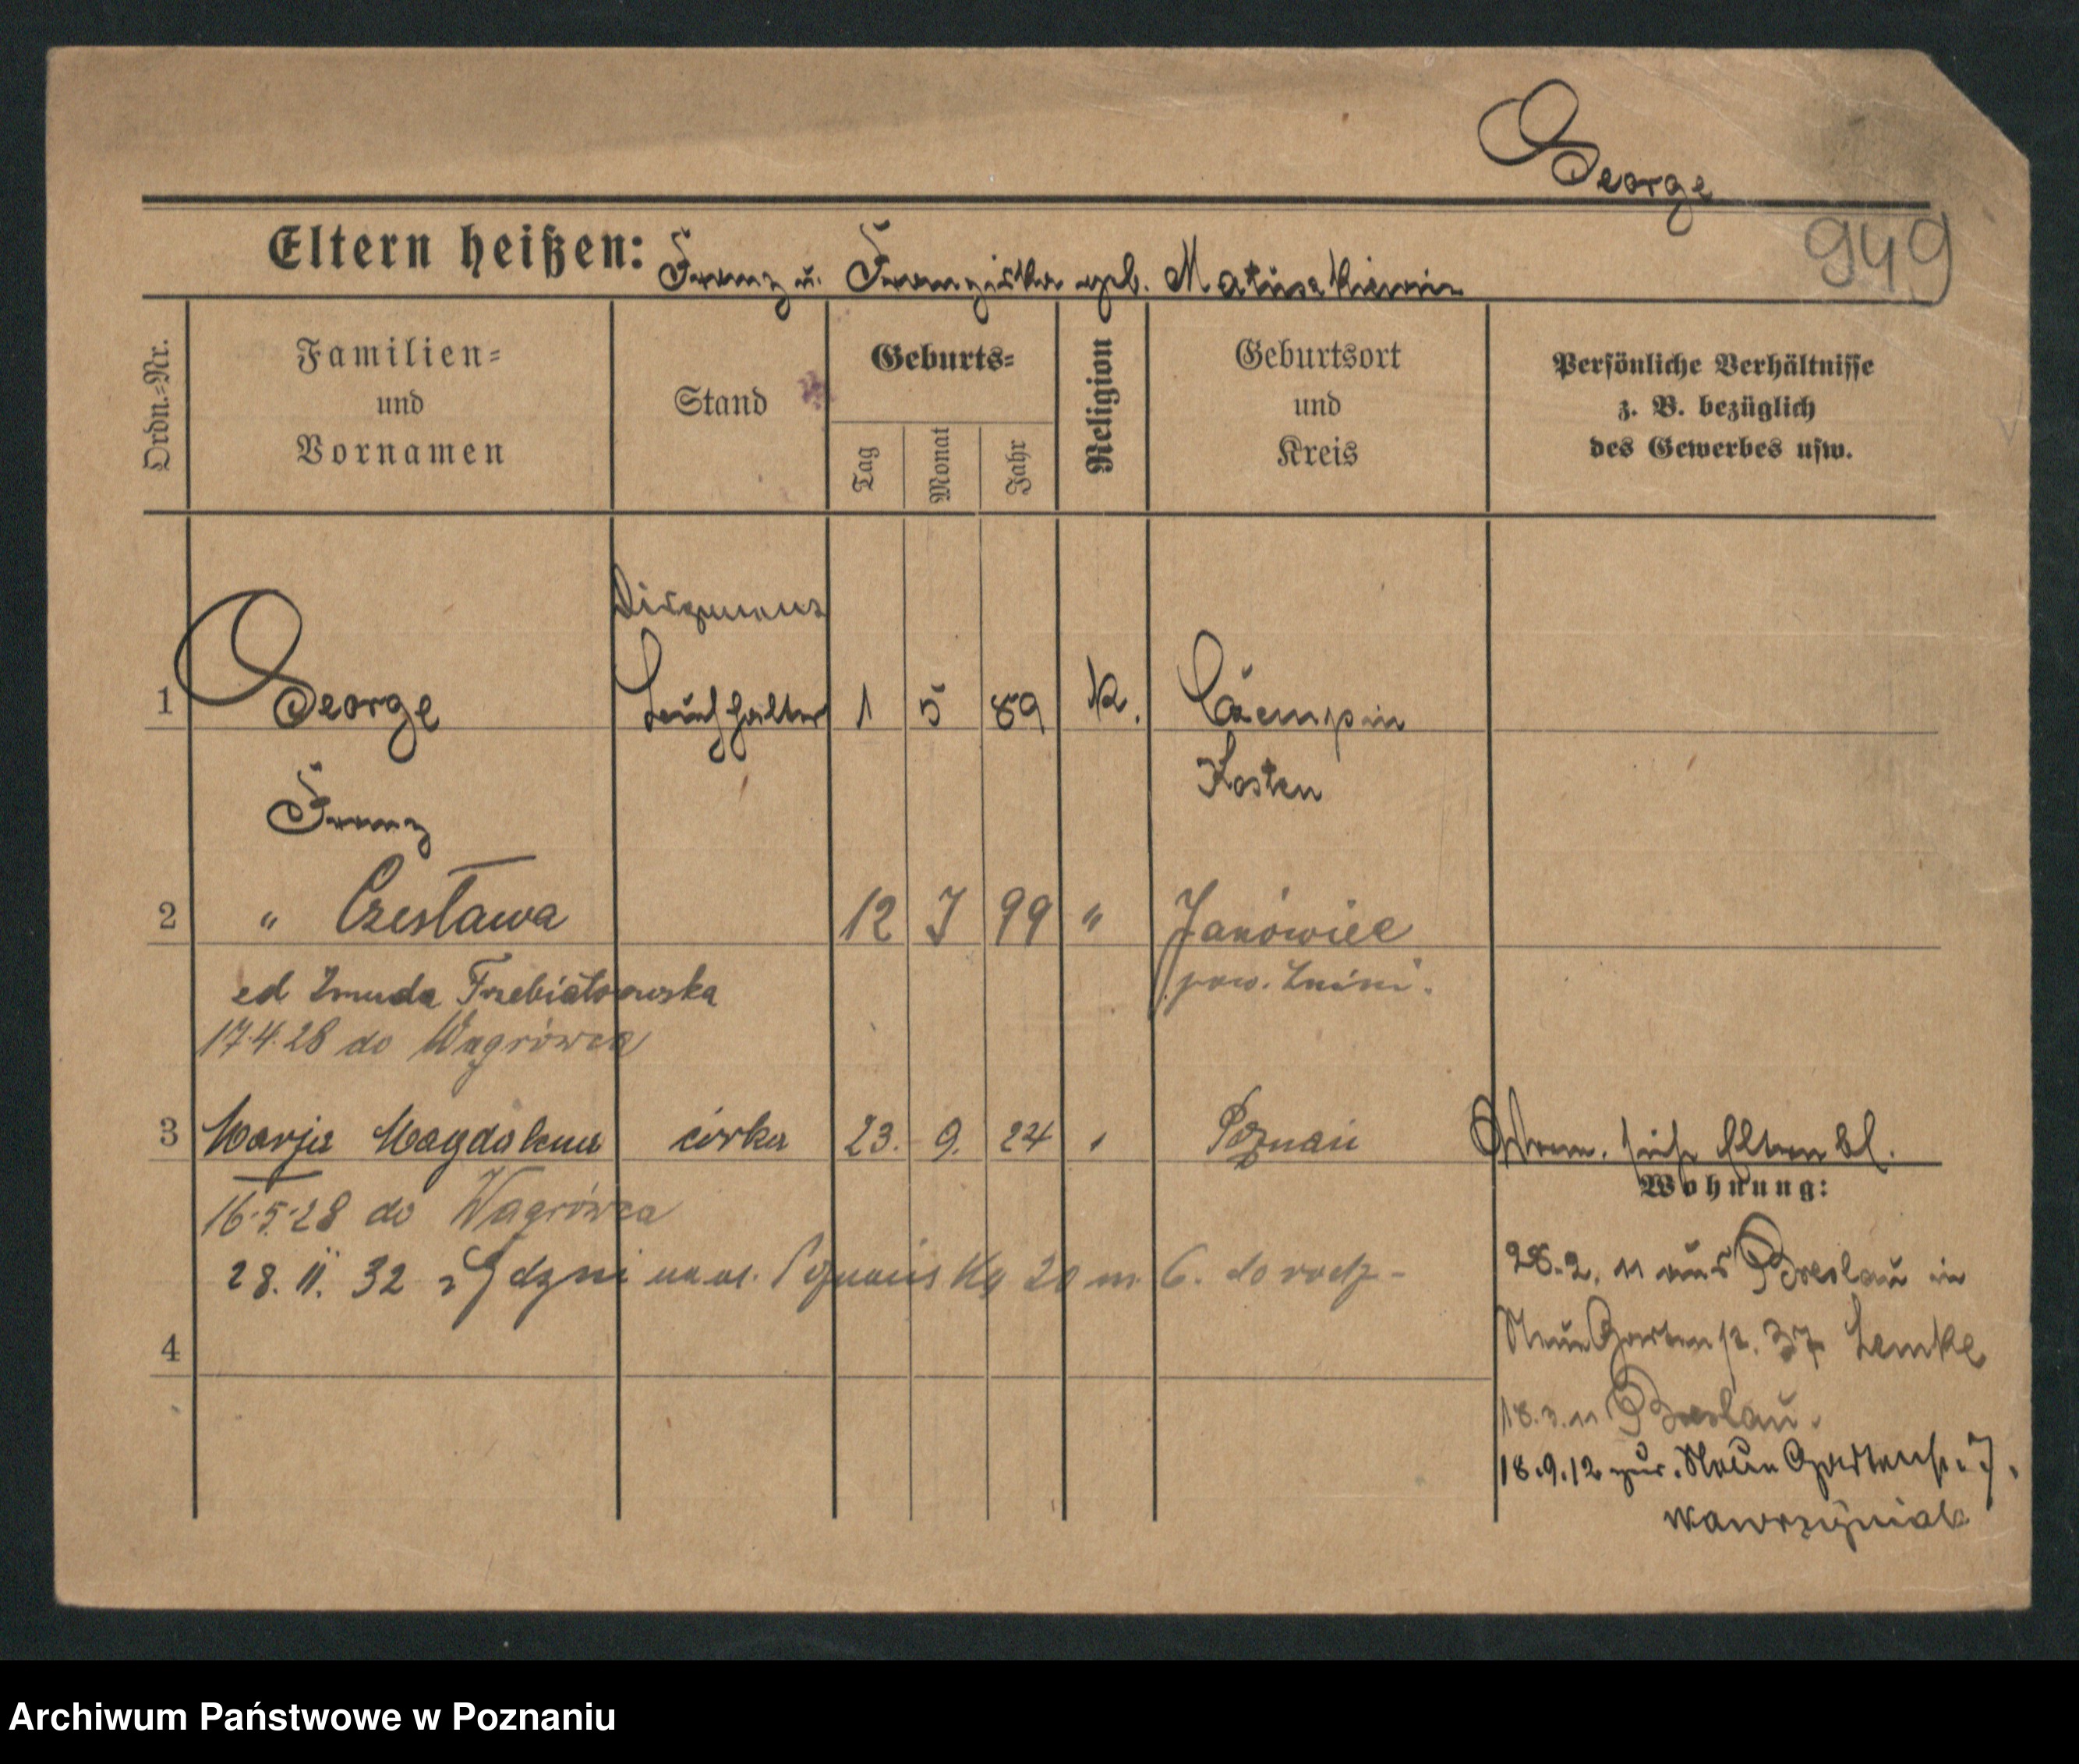 George
949
Eltern heißen: Franz u. Franziska geb. Matuszkiewicz
Ordn.=Nr.
Familien=
und
Vornamen
Stand
Geburts=
Tag
Monat
Jahr
Religion
Geburtsort
und
Kreis
Persönliche Verhältnisse
z. B. bezüglich
des Gewerbes usw.
1 George Buchhalter 1 5 89 k. Czempin
Kosten
Franz
2 " Czesława 12 I 99 " Janówiec
pow. Żnin
Żmuda Trzebiatowska
17.4.28 do Wągrówca
3 Marja Magdalena córka 23. 9. 24 Poznań
Eltern bl.
Wohnung:
16.5.28 do Wągrówca
28. II. 32 z Gdyni 20 m 6. do rodz-
28.2.11 aus Breslau in
Neue Gartenstr. 37 Lemke
18.3.11 Breslau.
18.9.12 zur. Neue Gartenstr. 7.
Wawrzyniak
4
Archiwum Państwowe w Poznaniu